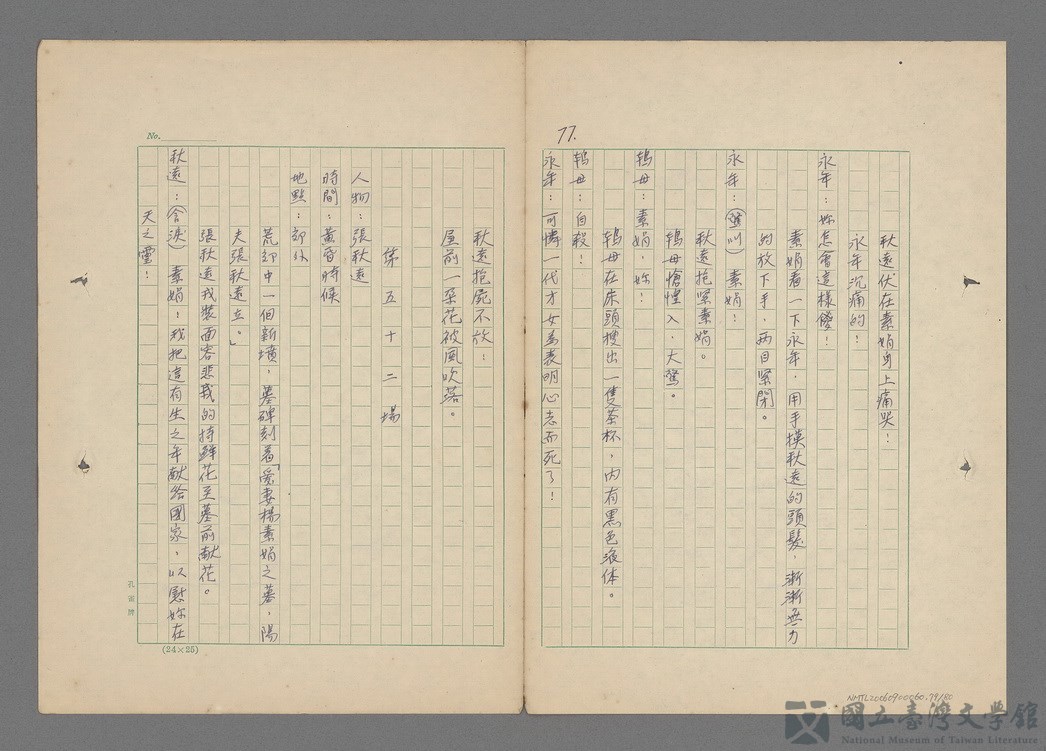 77.
秋遠伏在素娟身上痛哭！
永年沉痛的！
永年：妳怎會這樣傻！
素娟看一下永年，用手摸秋遠的頭髮，漸漸無力
的放下手，兩目緊閉。
永年：(驚叫)素娟！
秋遠抱緊素娟。
鴇母愴惶入，大驚。
鴇母：素娟，妳！
鴇母在床頭搜出一隻茶杯，內有黑色液体。
鴇母：自殺！
永年：可憐一代才女為表明心志而死了！
No.
秋遠抱屍不放！
屋前一朶花被風吹落。
第五十二場
人物：張秋遠
時間：黃昏時候
地點：郊外
荒郊中一個新墳，墓碑刻着「愛妻楊素娟之墓，陽
夫張秋遠立。」
張秋遠戎裝面容悲戚的持鮮花至墓前献花。
秋遠：(含淚)素娟，我把這有生之年献給國家，以慰妳在
天之靈！
(24×25)
NMTL20060900060.79/80
國立臺灣文學館
National Museum of Taiwan Literature